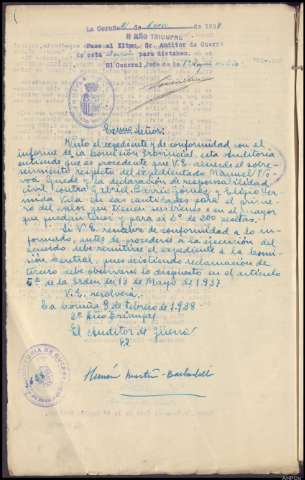 La Coruña de Enero de 1938
II AÑO TRIUNFAL
Pase al Iltmo. Sr. Auditor de Guerra
de esta para dictamen.
El General Jefe de la
Excmo Señor:
Visto el expediente y de conformidad con el
informe de la Comisión Provincial, esta Auditoria
entiende que es procedente que V.E. acuerde el sobre-
seimiento respecto del expedientado Manuel
y la declaración de responsabilidad
civil contra Gabriel y Eligio
Vila en las cantidades para el prime-
ro del valor que tienen
que puedan tener y para el 2º de 200 pesetas.
Si V.E. resuelve de conformidad a lo in-
formado, antes de proceder a la ejecución del
acuerdo debe remitirse el expediente a la Comi-
sión Central, pues existiendo reclamación de
tercero debe observarse lo dispuesto en el artículo
5º de la orden de 13 de Mayo de 1937.
V.E. resolverá.
La Coruña 9 de febrero de 1938
2º Año Triunfal
El Auditor de Guerra
Hernán Martín-Barbadillo
AUDITORIA DE GUERRA